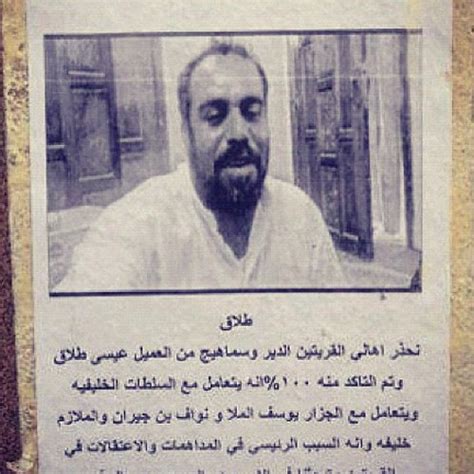 طلاق
نحذر اهالي القريتين الدير وسماهيج من العميل عيسى طلاق
وتم التاكد منه ١٠٠%انه يتعامل مع السلطات الخليفيه
ويتعامل مع الجزار يوسف الملا و نواف بن جيران والملازم
خليفه وانه السبب الرئيسي في المداهمات والاعتقالات في